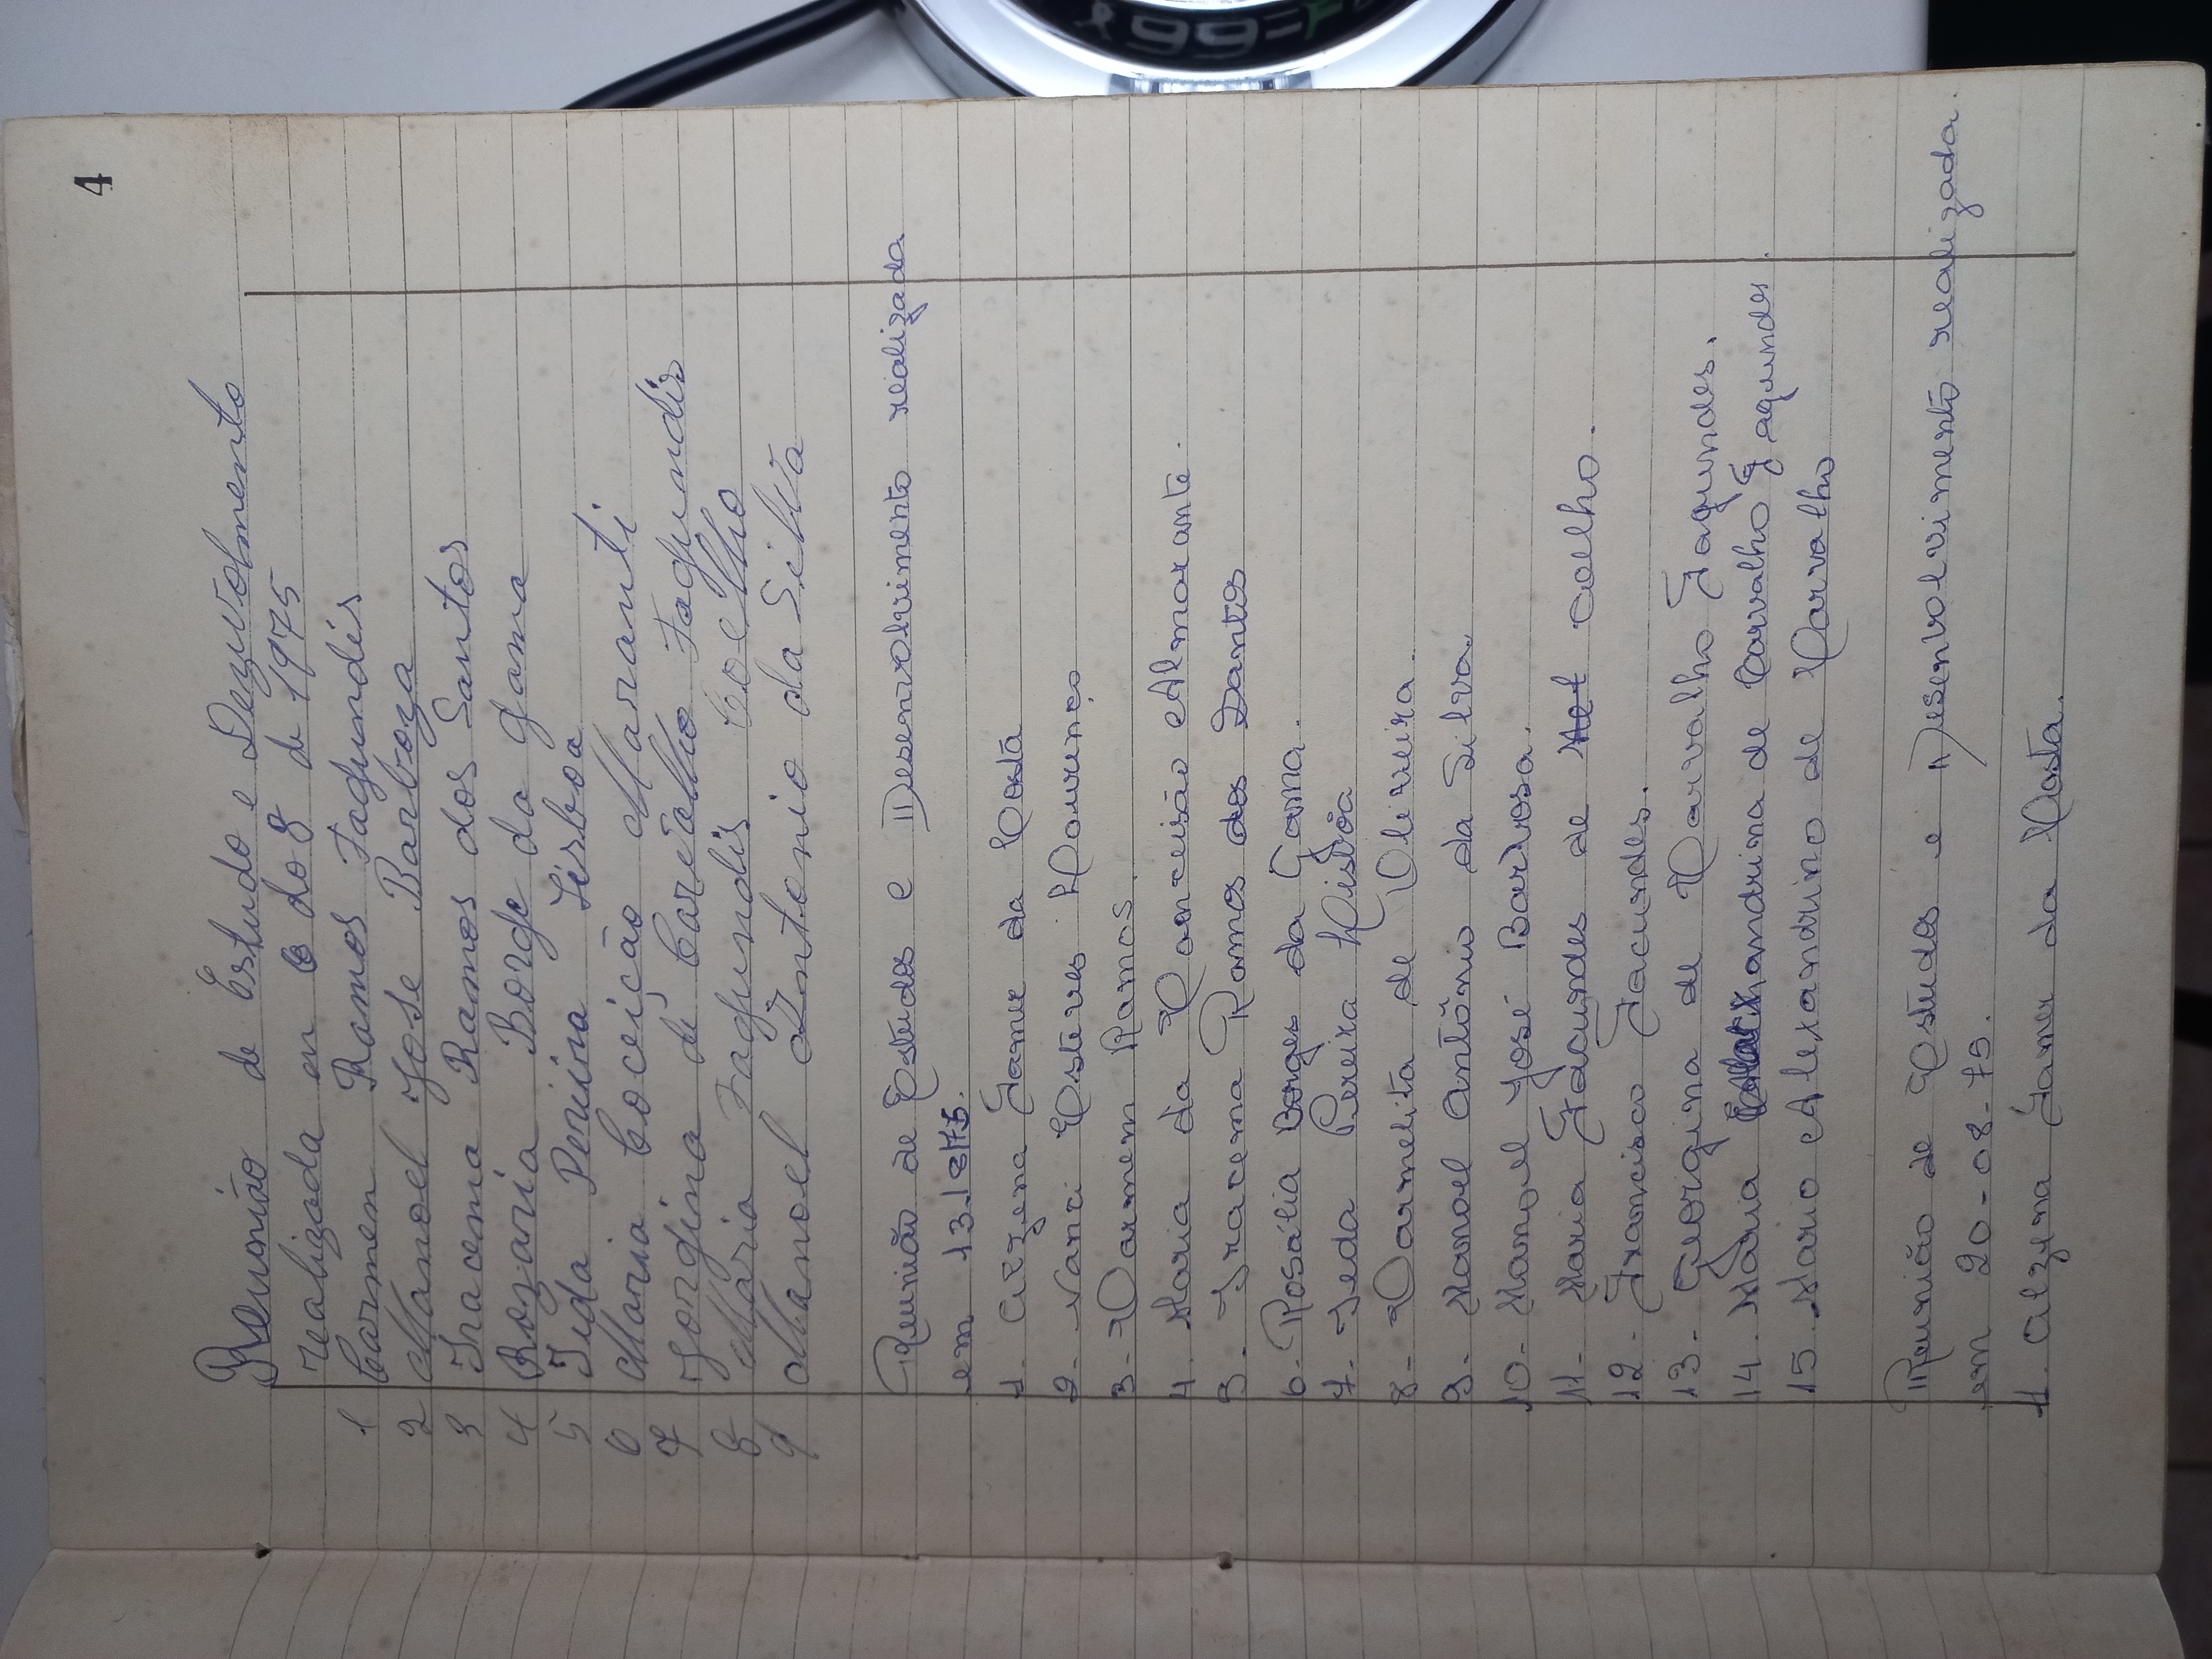 4
Reunião de Estudo e Dezvolmento
realizada en 6 do 8 de 1975
1 Carmem Ramos Fagundis
2 Manoel Jose Barboza
3 Iracema Ramos dos Santos
4 Rozaria Borge da gama
5 Ieda Perierra Lisboa
6 Maria Coceição Maranti
7 Jorgina de Carvalho Fagundis
8 Maria Fagundis Coelho
9 Manoel Antonio da Silva
Reunião de Estudos e Desenvolvimento realizada
em 13/8/75.
1. Alzena Jame da Costa
2. Nanci Esteves Lourenço
3- Carmem Ramos.
4. Maria da Conceisão Almorante.
5. Iracema Ramos dos Santos
6. Rosália Borges da Gama.
7- Ieda Pereira Lisbôa
8- Carmelita de Oliveira.
9- Manoel Antônio da Silva.
10- Manoel José Barbosa.
11- Maria Facundes de Coelho.
12- Francisco Facundes.
13- Georgina de Carvalho Fagundes.
14. Maria handrina de Carvalho Fagundes
15. Mario Alexandrino de Carvalho
Reunião de Estudos e Desenvolvimento realizada
em 20-08-75.
1. Alzyra James da Costa.